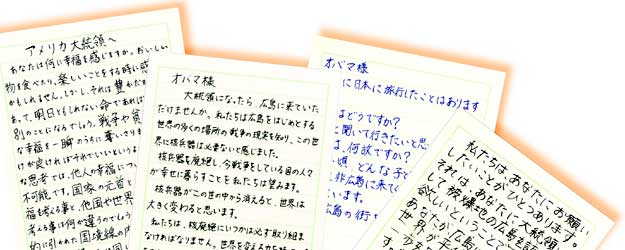 アメリカ大統領へ
あなたは何に幸福を感じますか。おいしい
物を食べたり、楽しいことをする時に感
かもしれません。しかし、それは豊かだ
あって、明日ともしれない命であれば
別のことになるでしょう。戦争や貧
な幸福を一瞬のうちに奪いさりま
けが良ければそれでいいという
な思考では、他人の幸福につ
不可能です。国家の元首と
福を考る事と、他国や世界
考える事は何が違うのでしょう
的に引かれた国境線の
オバマ様
大統領になったら、広島に来ていた
だけませんか。私たちは広島をはじめとする
世界の多くの場所の戦争の現実を知り、この世
界に核兵器は必要ないと感じました。
核兵器を廃絶し、今戦争している国の人々
が幸せに暮らすことを私たちは望みます。
核兵器がこの世の中から消えると、世界は
大きく変わると思います。
私たちは、核廃絶にいつかは必ず取り組ま
なければなりません。世界を変える力を
オバマ様
に日本に旅行したことはあります
はどうですか？
と聞いて行きたいと思
は、何故ですか？
い頃、どんな子
非広島に来て
います。
広島の街
私たちは、あなたにお願い
したいことがひとつあります
それは、あなたに大統領
して被爆地の広島を
欲しいということ
あなたが広島
世界が平
一歩